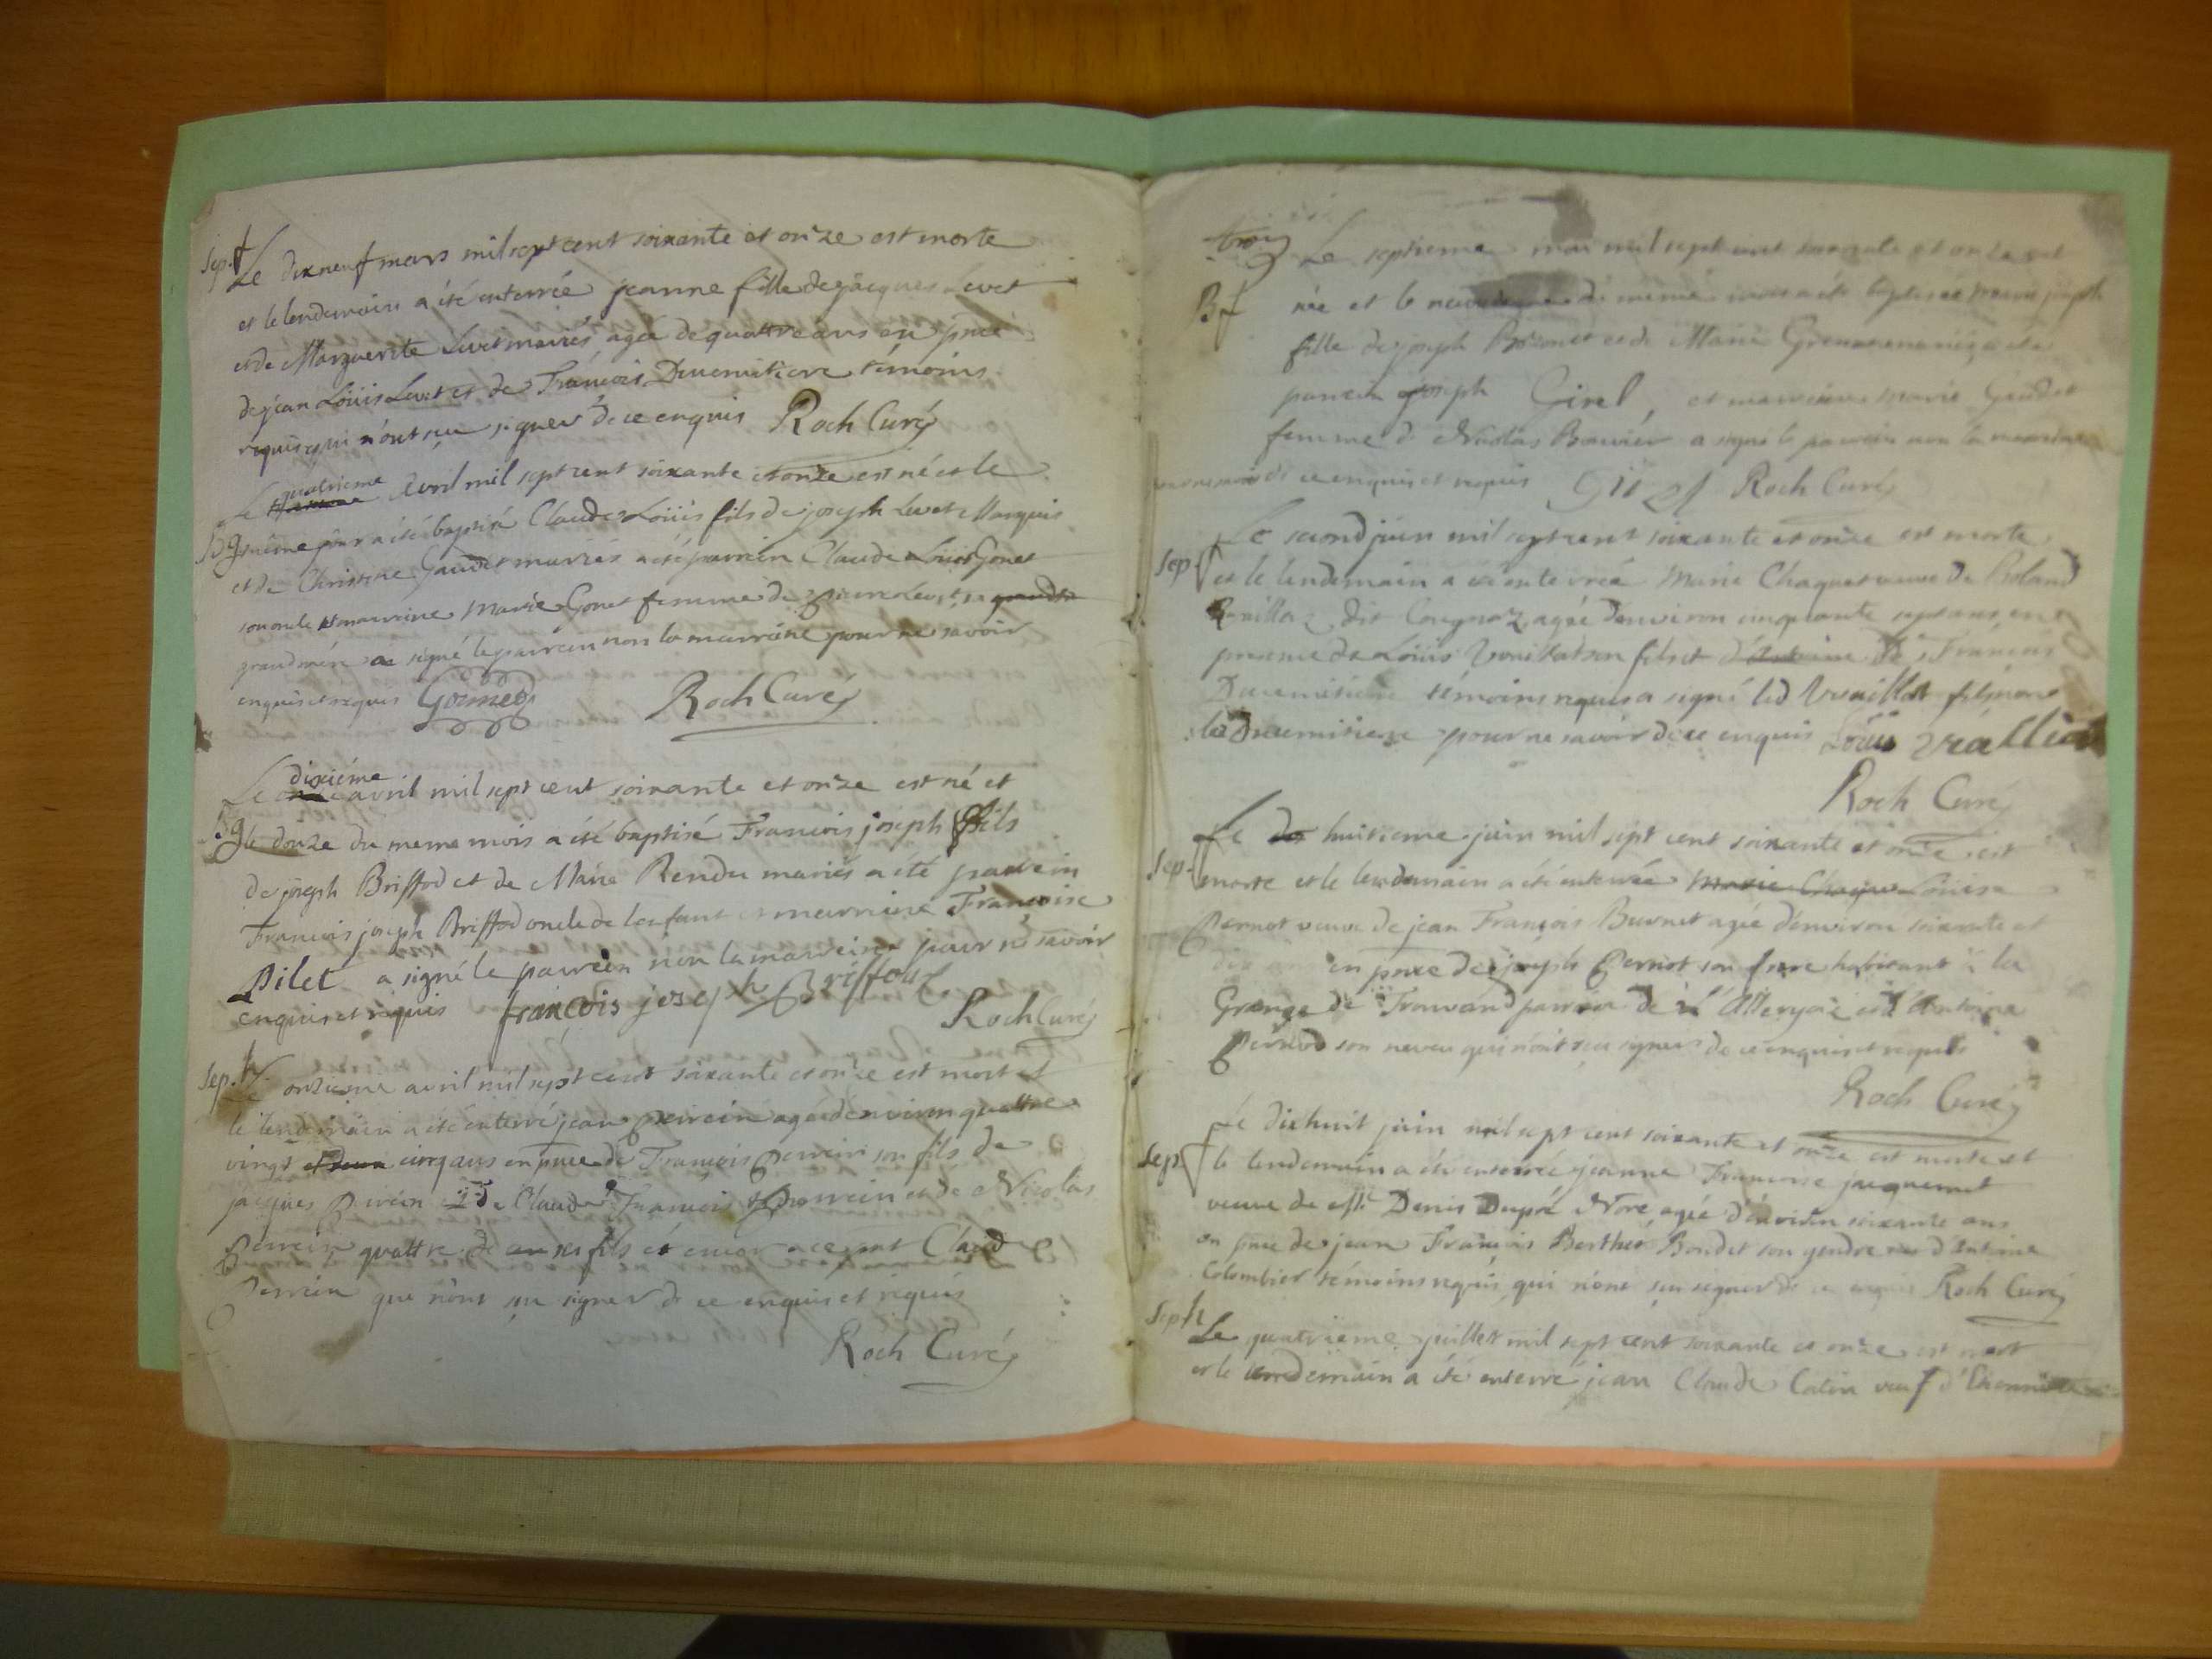 Sep. f
Le dixneuf mars mil sept cent soixante et onze est morte
et le lendemain a été enterrée jeanne fille de jacques Levet
et de Marguerite Levet mariés agée de quattre ans en pnce
de jean Loüis Levet et de François Ducemitiere témoins
requis qui n'ont sçu signer de ce enquis Roch Curé
Le quatrieme Avril mil sept cent soixante et onze est né et le
Bg même jour a été baptisé Claude Loüis fils de joseph Levet Marquis
et de Christine Gaudet mariés a été parrein Claude Loüis Gonet
son oncle et marreine Marie Gonet femme de Levet sa
grandmére a signé le parrein non la marreine pour ne savoir
enquis et requis Gonned Roch Curé
Le dixiéme avril mil sept cent soixante et onze est né et
Bg le douze du meme mois a été baptisé François joseph fils
de joseph Briffod et de Marie Rendu mariés a été parrein
François joseph Briffod oncle de lenfant et marreine Françoise
Pilet a signé le parrein non la marreine pour ne savoir
enquis et requis françois joseph Briffout
Roch Curé
Sep. h.
Le onzieme avril mil sept cent soixante et onze est mort et
le lendemain a été enterré jean perrein agé d'environ quattre
vingt et deux cinq ans en pnce de François Perrein son fils de
jacques Perrein de Claude François Perrein et de Nicolas
Perrein quattre de ses fils et encor Claud
Perrein que n'ont sçu signer de ce enquis et requis
Roch Curé
trois
Le septieme mai mil sept cent soixante et onze est
Bf née et le du meme mois a été baptisée Marie joseph
fille de joseph et de Marie
parrein joseph Girel, et marreine Marie Gaudet
femme de Nicolas Bouvier a signé le parrein non la marreine
pour ne savoir de ce enquis et requis Girel Roch Curé
Le second juin mil sept cent soixante et onze est morte
Sep. f et le lendemain a été enterrée Marie Chaquet veuve de Roland
dit agée denviron cinquante sept ans, en
presence de Loüis son fils et de François
Ducemitiere témoins requis a signé led fils non
led Ducemitiere pour ne savoir de ce enquis Loüis
Roch Curé
Le huitieme juin mil sept cent soixante et onze est
Sep. f morte et le lendemain a été enterrée Marie Chaque Loüise
Pernot veuve de jean François Burnet agée d'environ soixante et
dix ans en pnce de joseph Pernot son frere habitant à la
Grange de paroisse de et d'Antoine
Pernod son neveu qui n'ont sçu signer de ce enquis et requis
Roch Curé
Le dixhuit juin mil sept cent soixante et onze est morte et
Sep f le lendemain a été enterrée jeanne Françoise jacquemet
veuve de Denis Dupré agée d'environ soixante ans
en pnce de jean François Berthet Bondet son gendre d'Antoine
Colombier témoins requis qui n'ont sçu signer de ce enquis Roch Curé
Sep h
Le quatrieme juillet mil sept cent soixante et onze est mort
et le lendemain a été enterré jean Claude Catin veuf d'